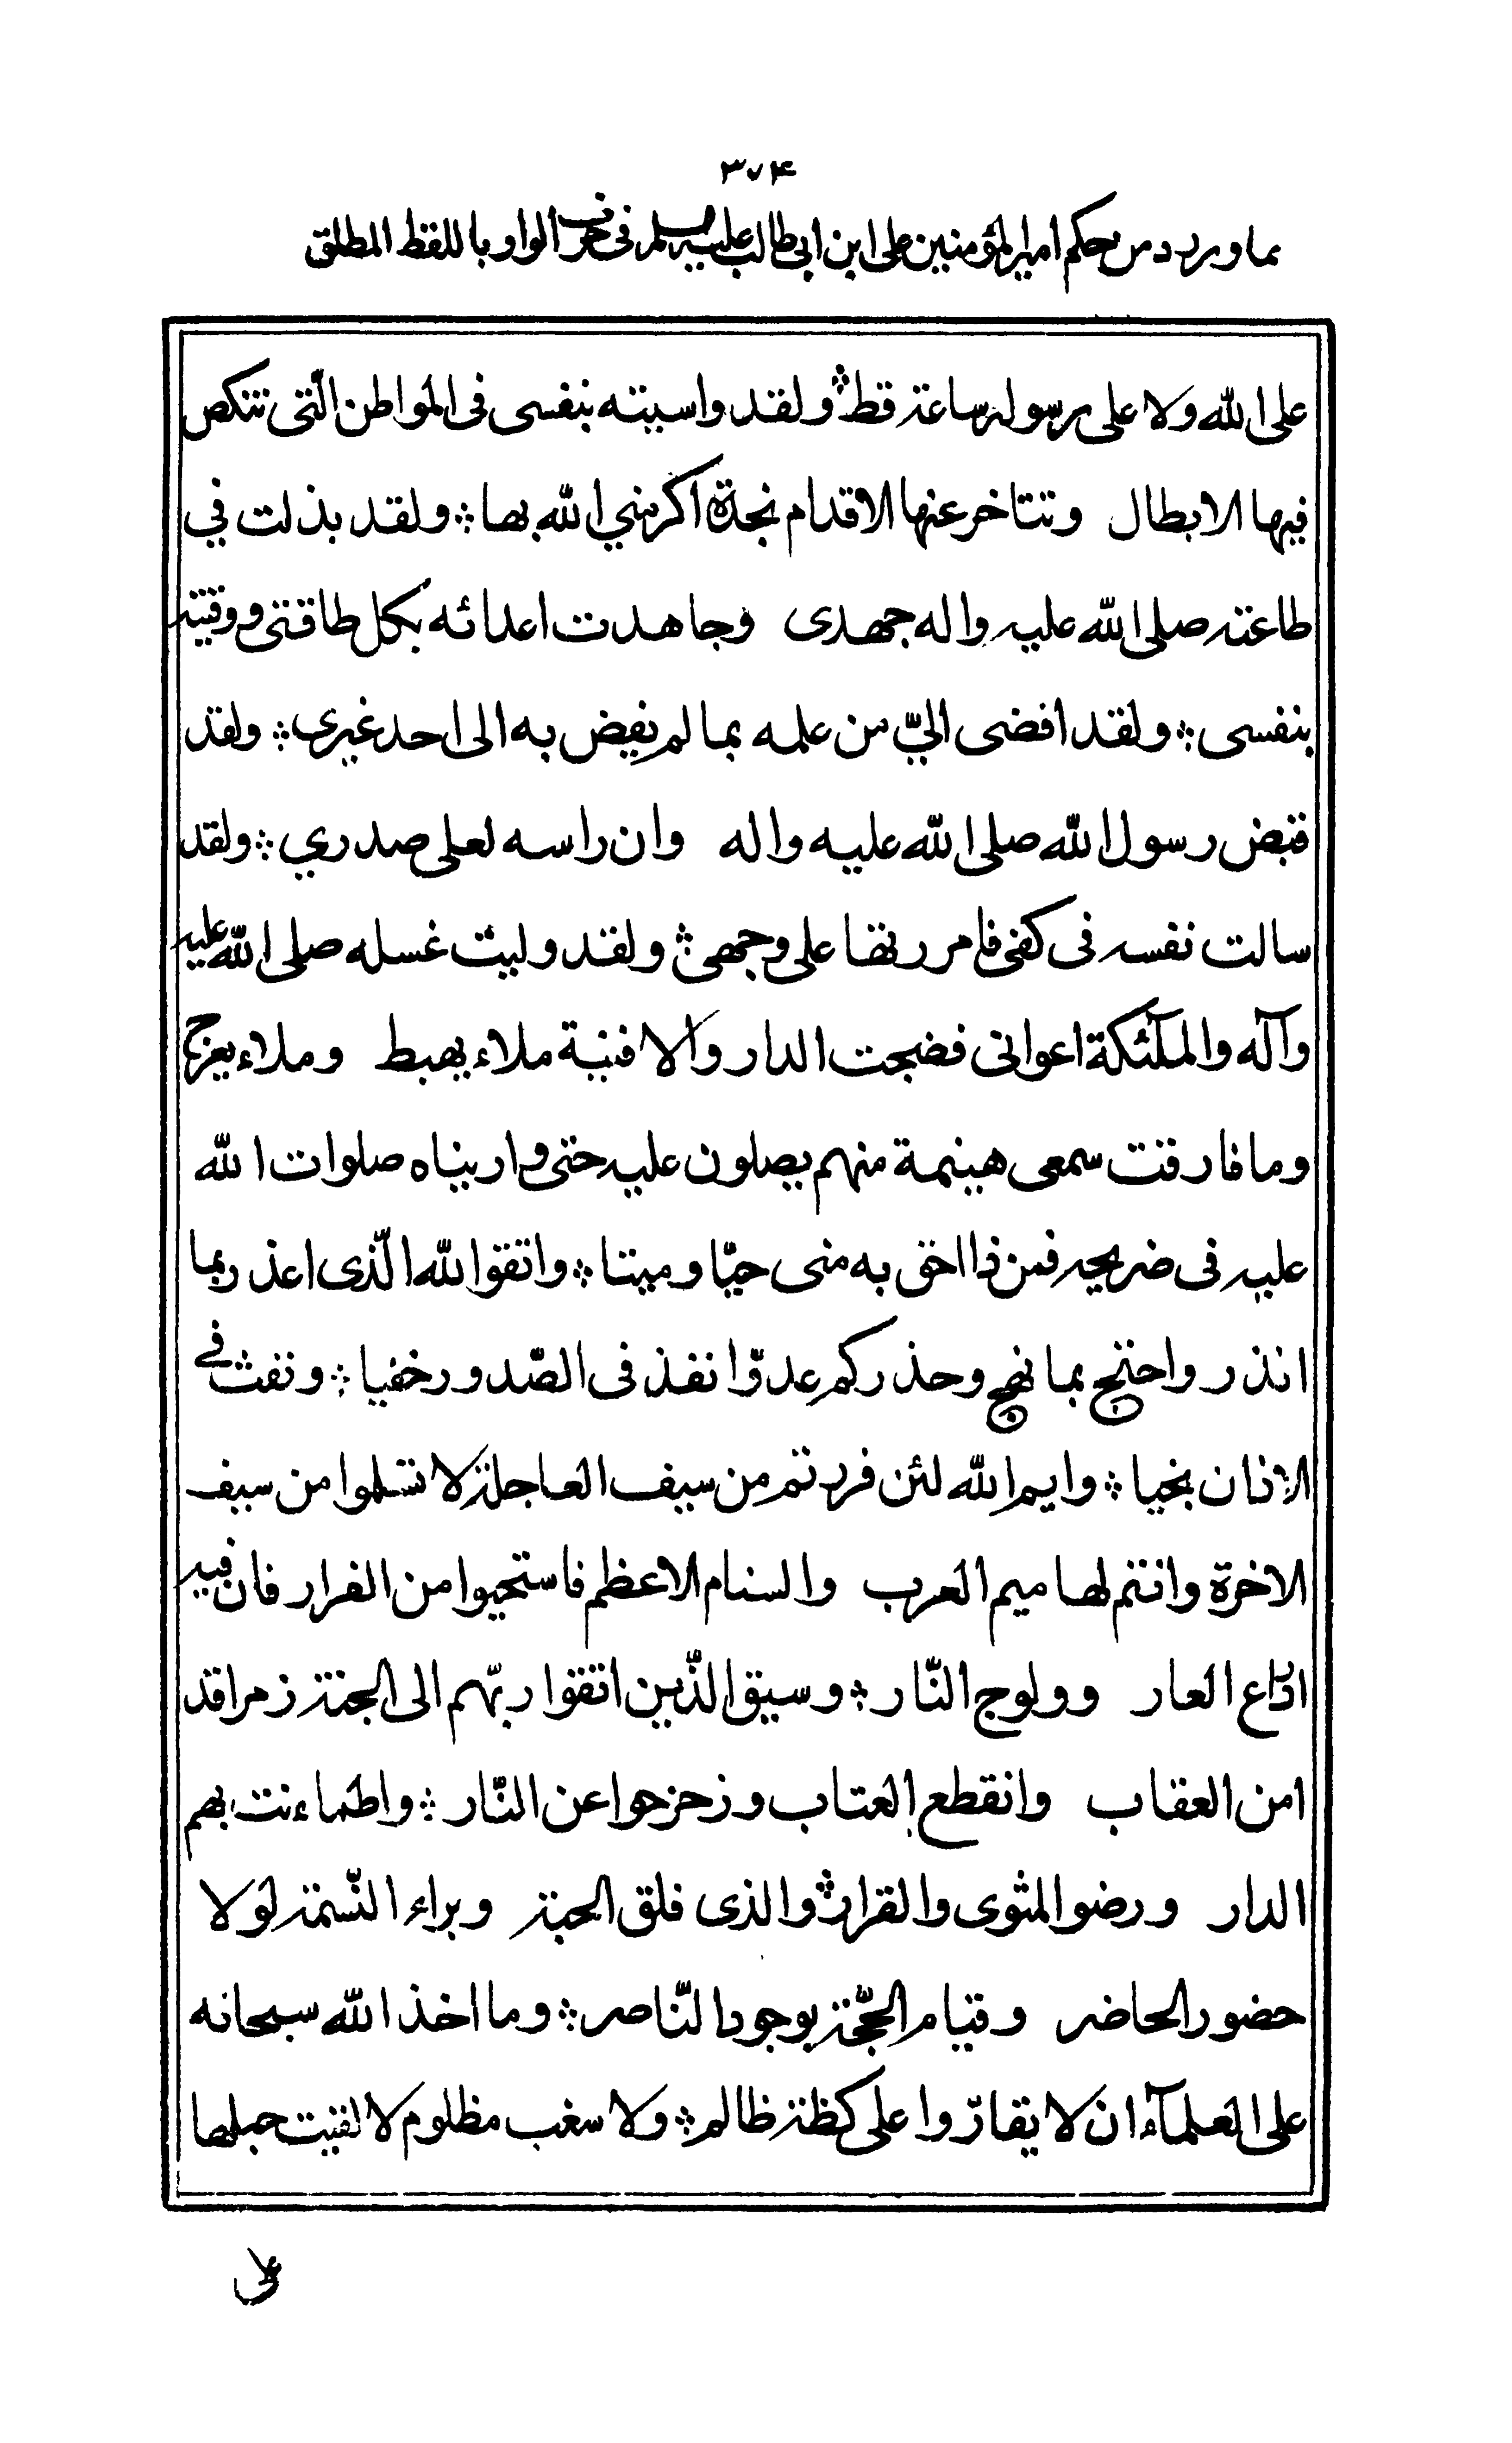 ۳۷۴
مما ورد من حكم امير المؤمنين على ابن ابي طالب عليه السلم في حرف الواو باللفظ المطلق
على الله ولا على رسوله ساعة قط ؞ ولقد واسيته بنفسى فى المواطن الّتى تنكص
فيها الابطال وتتاخر عنها الاقدام نجدة اكرمني الله بها ؞ ولقد بذلت في
طاعته صلى الله عليه واله جهدى وجاهدت اعدائه بكل طاقتى ووقيته
بنفسى ؞ ولقد افضى اليّ من علمه بما لم يفض به الى احد غيري ؞ ولقد
قبض رسول الله صلى الله عليه واله وان راسه لعلى صدري ؞ ولقد
سالت نفسه فى كفى فامررتها على وجهى ؞ ولقد وليت غسله صلى الله عليه
وآله والملٓئكة اعوانى فضجت الدار والافنية ملاء يهبط وملاء يعرج
وما فارقت سمعى هينمة منهم يصلون عليه حتى واريناه صلوات الله
عليه فى ضريحه فمن ذا احق به منى حيّا وميتا ؞ واتقوا الله الّذى اعذر بما
انذر واحتج بما نهج وحذركم عدوّا نفذ فى الصّدور خفيا ؞ ونفث فے
الاذان نجيا ؞ وايم الله لئن فررتم من سيف العاجلة لا تسلموا من سيف
الاخرة وانتم لهاميم العرب والسنام الاعظم فاستحيوا من الفرار فان فيه
ادّراع العار وولوج النّار ؞ وسيق الذّين اتقوا ربّهم الى الجنة زمرا قد
امن العقاب وانقطع العتاب وزحزحوا عن النّار ؞ واطماءنت بهم
الدار ورضوا المثوى والقرار ؞ والذى فلق الحبة وبراء النّسمة لولا
حضور الحاضر وقيام الحجّة بوجود النّاصر ؞ وما اخذ الله سبحانه
على العلمآء ان لا يقارّوا على كظة ظالم ؞ ولا سغب مظلوم لالقيت حبلها
على